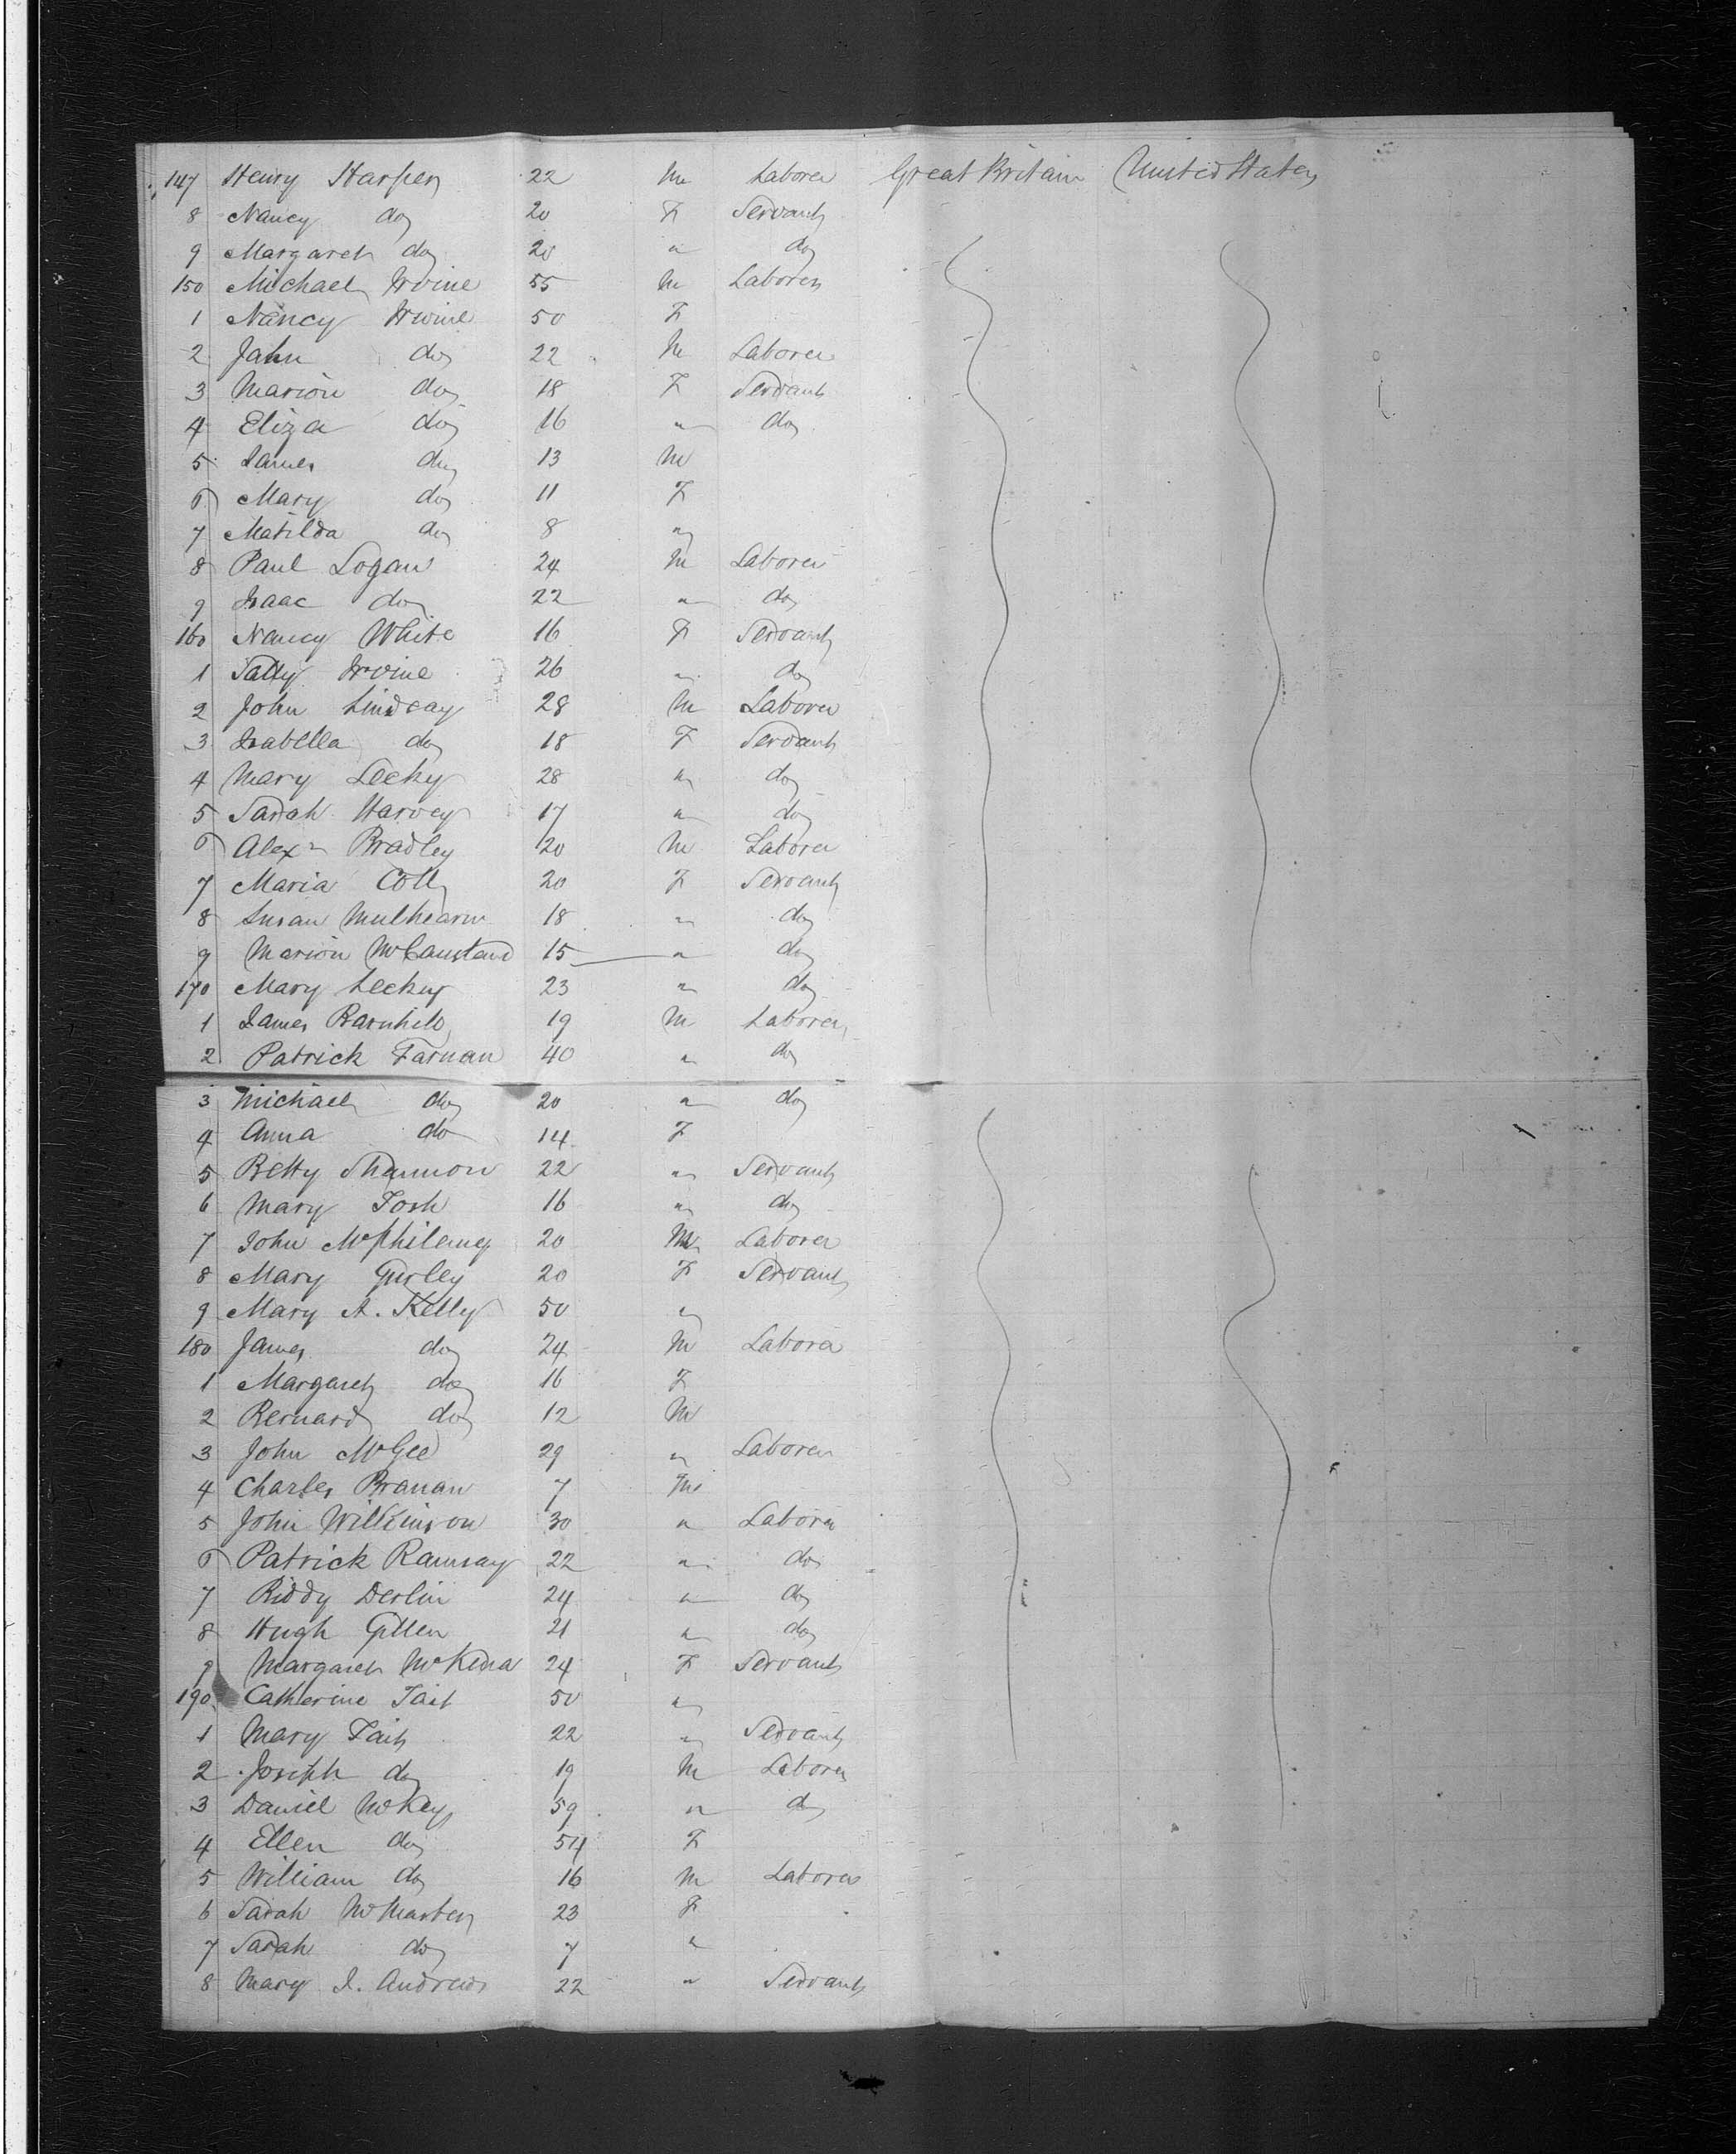 147 Henry Harper 22 M Laborer Great Britain United States
8 Nancy do 20 F Servant
9 Margaret do 20 " do
150 Michael Irvine 55 M Laborer
1 Nancy Irvine 50 F
2 John do 22 M Laborer
3 Marion do 18 F Servant
4 Eliza do 16 " do
5 James do 13 M
6 Mary do 11 F
7 Matilda do 8 "
8 Paul Logan 24 M Laborer
9 Isaac do 22 " do
160 Nancy White 16 F Servant
1 Sally Irvine 26 " do
2 John Lindsay 28 M Laborer
3 Isabella do 18 F Servant
4 Mary Leeky 28 " do
5 Sarah Harvey 17 " do
6 Alexr Bradley 20 M Laborer
7 Maria Coll 20 F Servant
8 Susan Mulhearn 18 " do
9 Marion McCausland 15 " do
170 Mary Leckey 23 " do
1 James Barnhill 19 M Laborer
2 Patrick Farnan 40 " do
3 Michael do 20 " do
4 Anna do 14 F
5 Betty Shannon 22 " Servant
6 Mary Tosh 16 " do
7 John McPhilemy 20 M Laborer
8 Mary Gurley 20 F Servant
9 Mary A. Kelly 50 "
180 James do 24 M Laborer
1 Margaret do 16 F
2 Bernard do 12 M
3 John McGee 29 " Laborer
4 Charles Branan 7 M
5 John Wilkinson 30 " Laborer
6 Patrick Ramsay 22 " do
7 Biddy Derlin 24 " do
8 Hugh Gillen 21 " do
9 Margaret McKena 24 F Servant
190 Catherine Tait 50 "
1 Mary Tait 22 " Servant
2 Joseph do 19 M Laborer
3 Daniel McKey 59 " do
4 Ellen do 54 F
5 William do 16 M Laborer
6 Sarah McMaster 23 F
7 Sarah do 7 "
8 Mary J. Andrews 22 " Servant